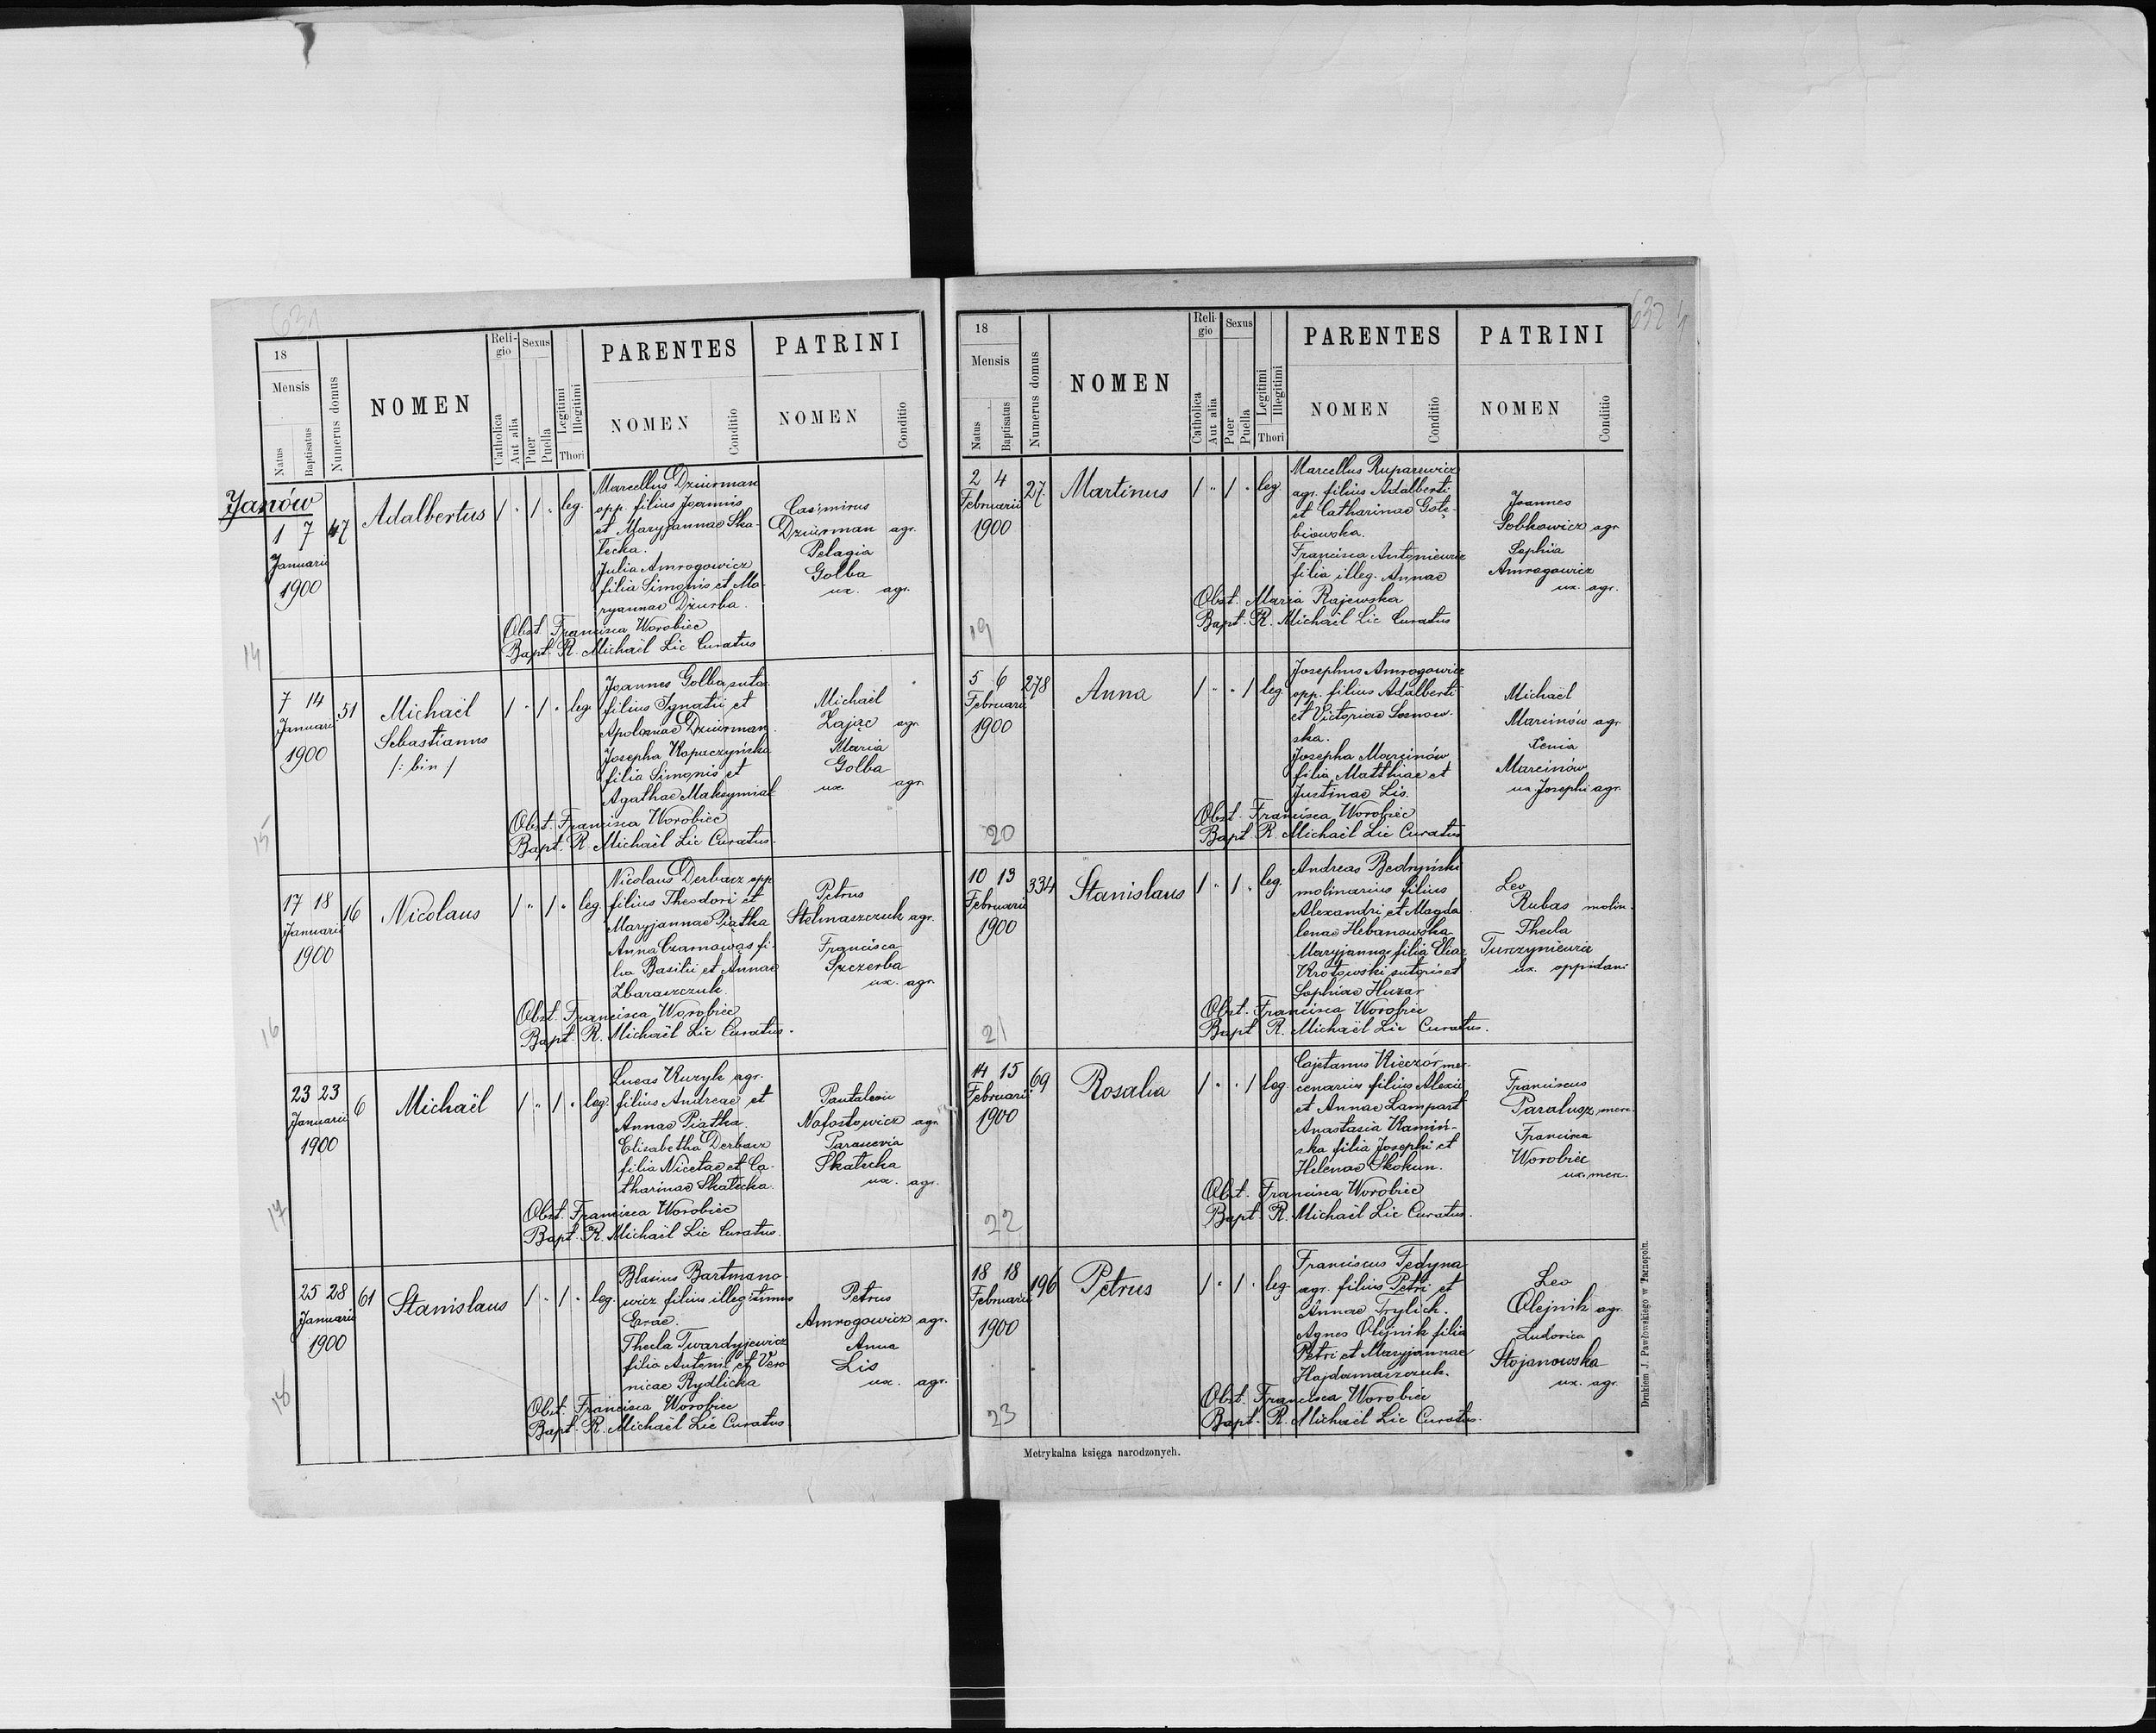 631
18
Mensis
Natus
Baptisatus
Numerus domus
NOMEN
Reli-
gio
Catholica
Aut alia
Sexus
Puer
Puella
Legitimi
Illegitimi
Thori
PARENTES
NOMEN
Conditio
PATRINI
NOMEN
Conditio
Janów
1 7
Januarii
1900
47
Adalbertus
/ " / " leg.
Marcellus Dziurman
opp. filius Joannis
et Maryjannae Ska-
lecka.
Julia Amrogowicz
filia Simonis et Ma-
ryannae Dziurba.
Casimirus
Dziurman agr.
Pelagia
Golba
ux. agr.
Obst. Francisca Worobiec
Bapt. R. Michaël Lic Curatus
14
7 14
Januarii
1900
51
Michaël
Sebastianus
/: bin /
/ " / " leg.
Joannes Golba sutor
filius Ignatii et
Apoloniae Dziurman.
Josepha Kopaczyńska
filia Simonis et
Agathae Maksymiak
Michaël
Zając agr.
Maria
Golba
ux agr.
Obst. Francisca Worobiec
Bapt. R. Michaël Lic Curatus.
15
17 18
Januarii
1900
16
Nicolaus
/ " / " leg.
Nicolaus Derbasz opp
filius Theodori et
Maryjannae Piątka
Anna Czarnowąs fi-
lia Basilii et Annae
Zbaraszczuk.
Petrus
Stelmaszczuk agr.
Francisca
Szczerba
ux. agr.
Obst. Francisca Worobiec
Bapt. R. Michaël Lic Curatus.
16
23 23
Januarii
1900
6
Michaël
/ " / " leg.
Lucas Kuzyk agr.
filius Andreae et
Annae Piątka.
Elisabetha Derbasz
filia Nicetae et Ca-
tharinae Skalecka.
Pantaleon
Nofostowicz agr.
Parascevia
Skalecka
ux. agr.
Obst. Francisca Worobiec
Bapt. R. Michaël Lic Curatus.
17
25 28
Januarii
1900
61
Stanislaus
/ " / " leg.
Blasius Bartmano-
wicz filius illegitimus
Evae.
Thecla Twardyjewicz
filia Antonii et Vero-
nicae Rydlicka
Petrus
Amrogowicz agr.
Anna
Lis
ux. agr.
Obst. Francisca Worobiec
Bapt. R. Michaël Lic Curatus.
18
632
18
Mensis
Natus
Baptisatus
Numerus domus
NOMEN
Reli-
gio
Catholica
Aut alia
Sexus
Puer
Puella
Legitimi
Illegitimi
Thori
PARENTES
NOMEN
Conditio
PATRINI
NOMEN
Conditio
2 4
Februarii
1900
27.
Martinus
/ " / " leg.
Marcellus Ruparewicz
agr. filius Adalberti
et Catharinae Gołę-
biowska.
Francisca Antoniewicz
filia illeg. Annae
Joannes
Sobkowicz agr
Sophia
Amrogowicz
ux. agr.
Obst. Maria Rajewska
Bapt. R. Michaël Lic Curatus
19
5 6
Februarii
1900
278
Anna
/ " " / leg.
Josephus Amrogowicz
opp. filius Adalberti
et Victoriae Sosnow-
ska.
Josepha Marcinów
filia Matthiae et
Justinae Lis.
Michaël
Marcinów agr.
Xenia
Marcinów
ux. Josephi agr.
Obst. Francisca Worobiec
Bapt. R. Michaël Lic Curatus
20
10 13
Februarii
1900
334
Stanislaus
/ " / " leg.
Andreas Bedryński
molinarius filius
Alexandri et Magda
lenae Hebanowska
Maryjanna filia Eliae
Krotowski sutoris et
Sophiae Huzar
Leo
Rubas molin.
Thecla
Turczyniewicz
ux. oppidani
Obst. Francisca Worobiec
Bapt R. Michaël Lic Curatus.
21
14 15
Februarii
1900
69
Rosalia
/ " " / leg.
Cajetanus Kieczór mer-
cenarius filius Alexii
et Annae Lampart
Anastasia Kamiń-
ska filia Josephi et
Helenae Skokun.
Franciscus
Paralusz merc.
Francisca
Worobiec
ux. merc.
Obst. Francisca Worobiec
Bapt. R. Michaël Lic Curatus.
22
18 18
Februarii
1900
196
Petrus
/ " / " leg.
Franciscus Fedyna
agr. filius Petri et
Annae Trylich.
Agnes Olejnik filia
Petri et Maryjannae
Hajdamaszczuk.
Leo
Olejnik agr.
Ludovica
Stojanowska
ux. agr.
Obst. Francisca Worobiec
Bapt. R. Michaël Lic Curatus.
23
Metrykalna księga narodzonych.
Drukiem J. Pawłowskiego w Tarnopolu.